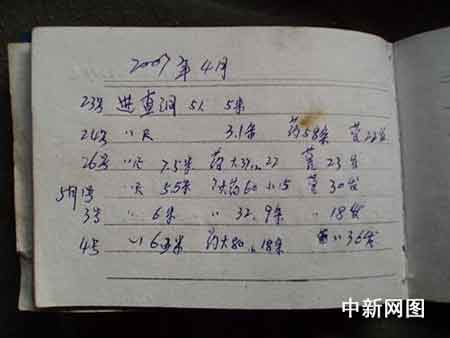 2007年4月
23号 进直洞 5人 5米
24号 〃 R 3.1米 药58米 管22发
26号 〃 R 7.5米 药大37 22 管23发
5月1号 〃 R 5.5米 大药60 15 管30发
3号 〃 6米 〃 32.9米 〃 18发
4号 〃 6米 药大80 18米 〃 36发
中新网图